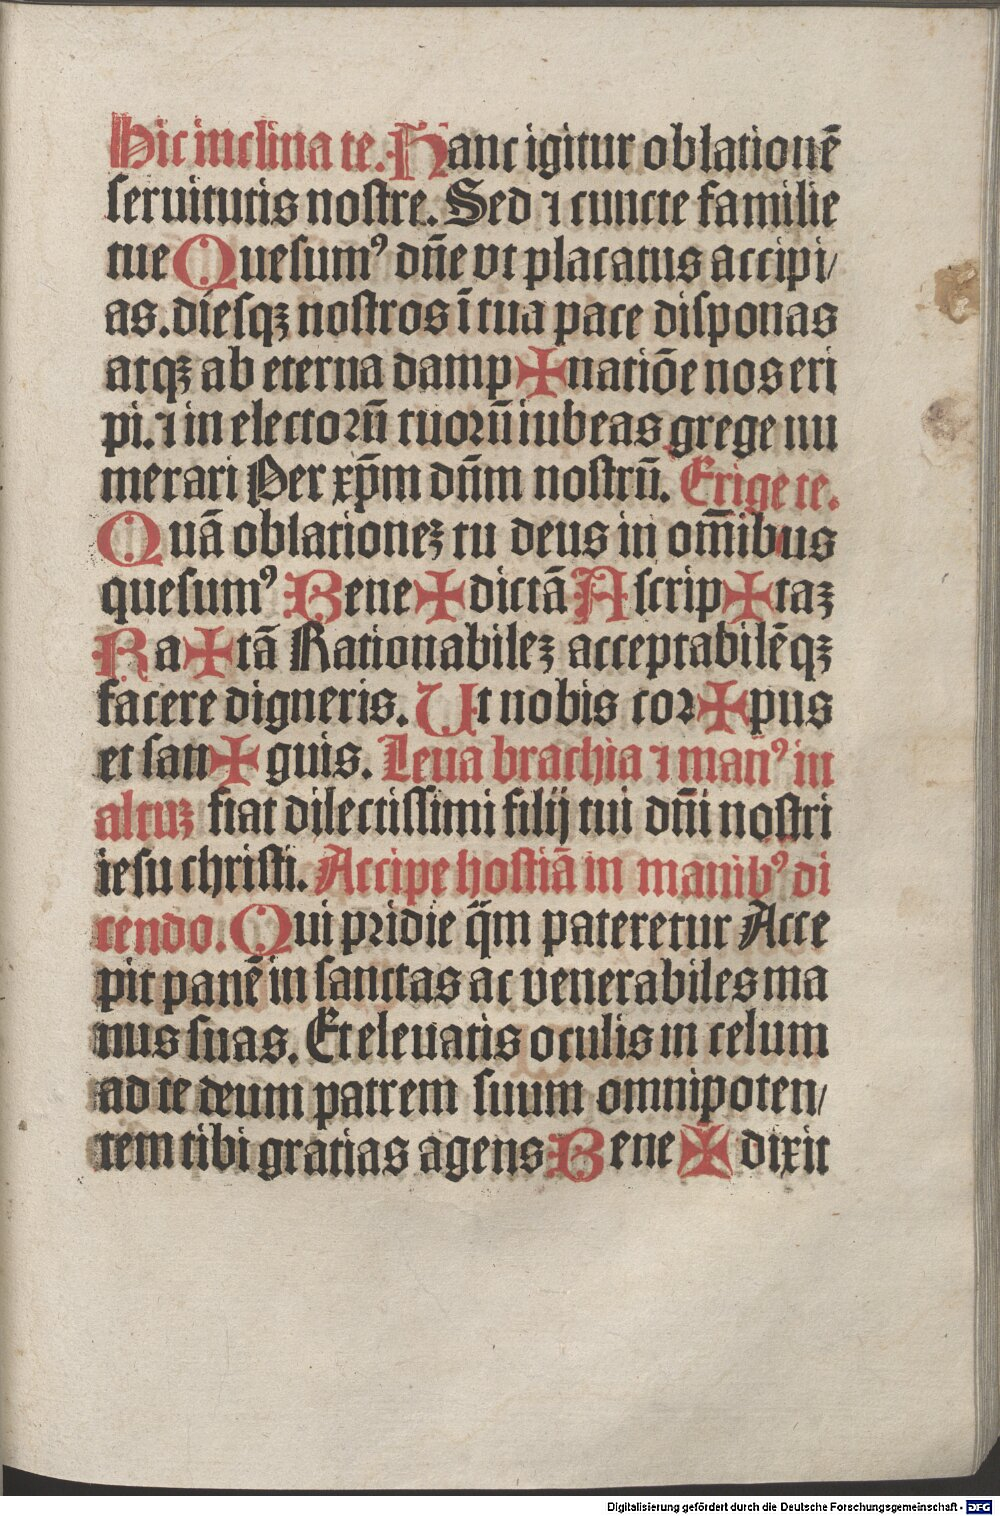 Hic inclina te. Hanc igitur oblationē
ſeruitutis noſtre. Sed ⁊ cuncte familie
tue Queſumꝰ dn̄e vt placatus accipi/
as. dieſqꝫ noſtros ī tua pace diſponas
atqꝫ ab eterna damp✠natiōe nos eri
pi. ⁊ in electoꝛū tuoꝛū iubeas grege nu
merari Per xp̄m dn̄m noſtrū. Erige te.
Quā oblationeꝫ tu deus in om̄ibus
queſumꝰ Bene✠dictā Aſcrip✠taꝫ
Ra✠tā Rationabileꝫ acceptabilēqꝫ
facere digneris. Ut nobis coꝛ✠pus
et ſan✠guis. Leua brachia ⁊ man̄ꝰ in
altuꝫ fiat dilectiſſimi filij tui dn̄i noſtri
ieſu chriſti. Accipe hoſtiā in manibꝰ di
cendo. Qui pꝛidie q̄m pateretur Acce
pit panē in ſanctas ac venerabiles ma
nus ſuas. Et eleuatis oculis in celum
ad te deum patrem ſuum omnipoten/
tem tibi gratias agens Bene✠dixit
Digitalisierung gefördert durch die Deutsche Forschungsgemeinschaft - DFG